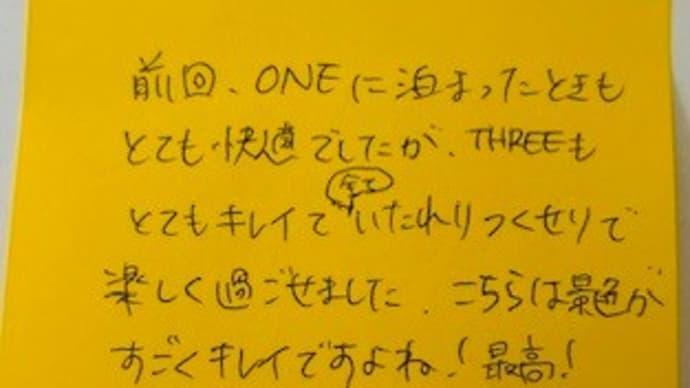 前回、ONEに泊まったときも
とても快適でしたが、THREEも
とてもキレイで全ていたれりつくせりで
楽しく過ごせました。こちらは景色が
すごくキレイですよね!最高!